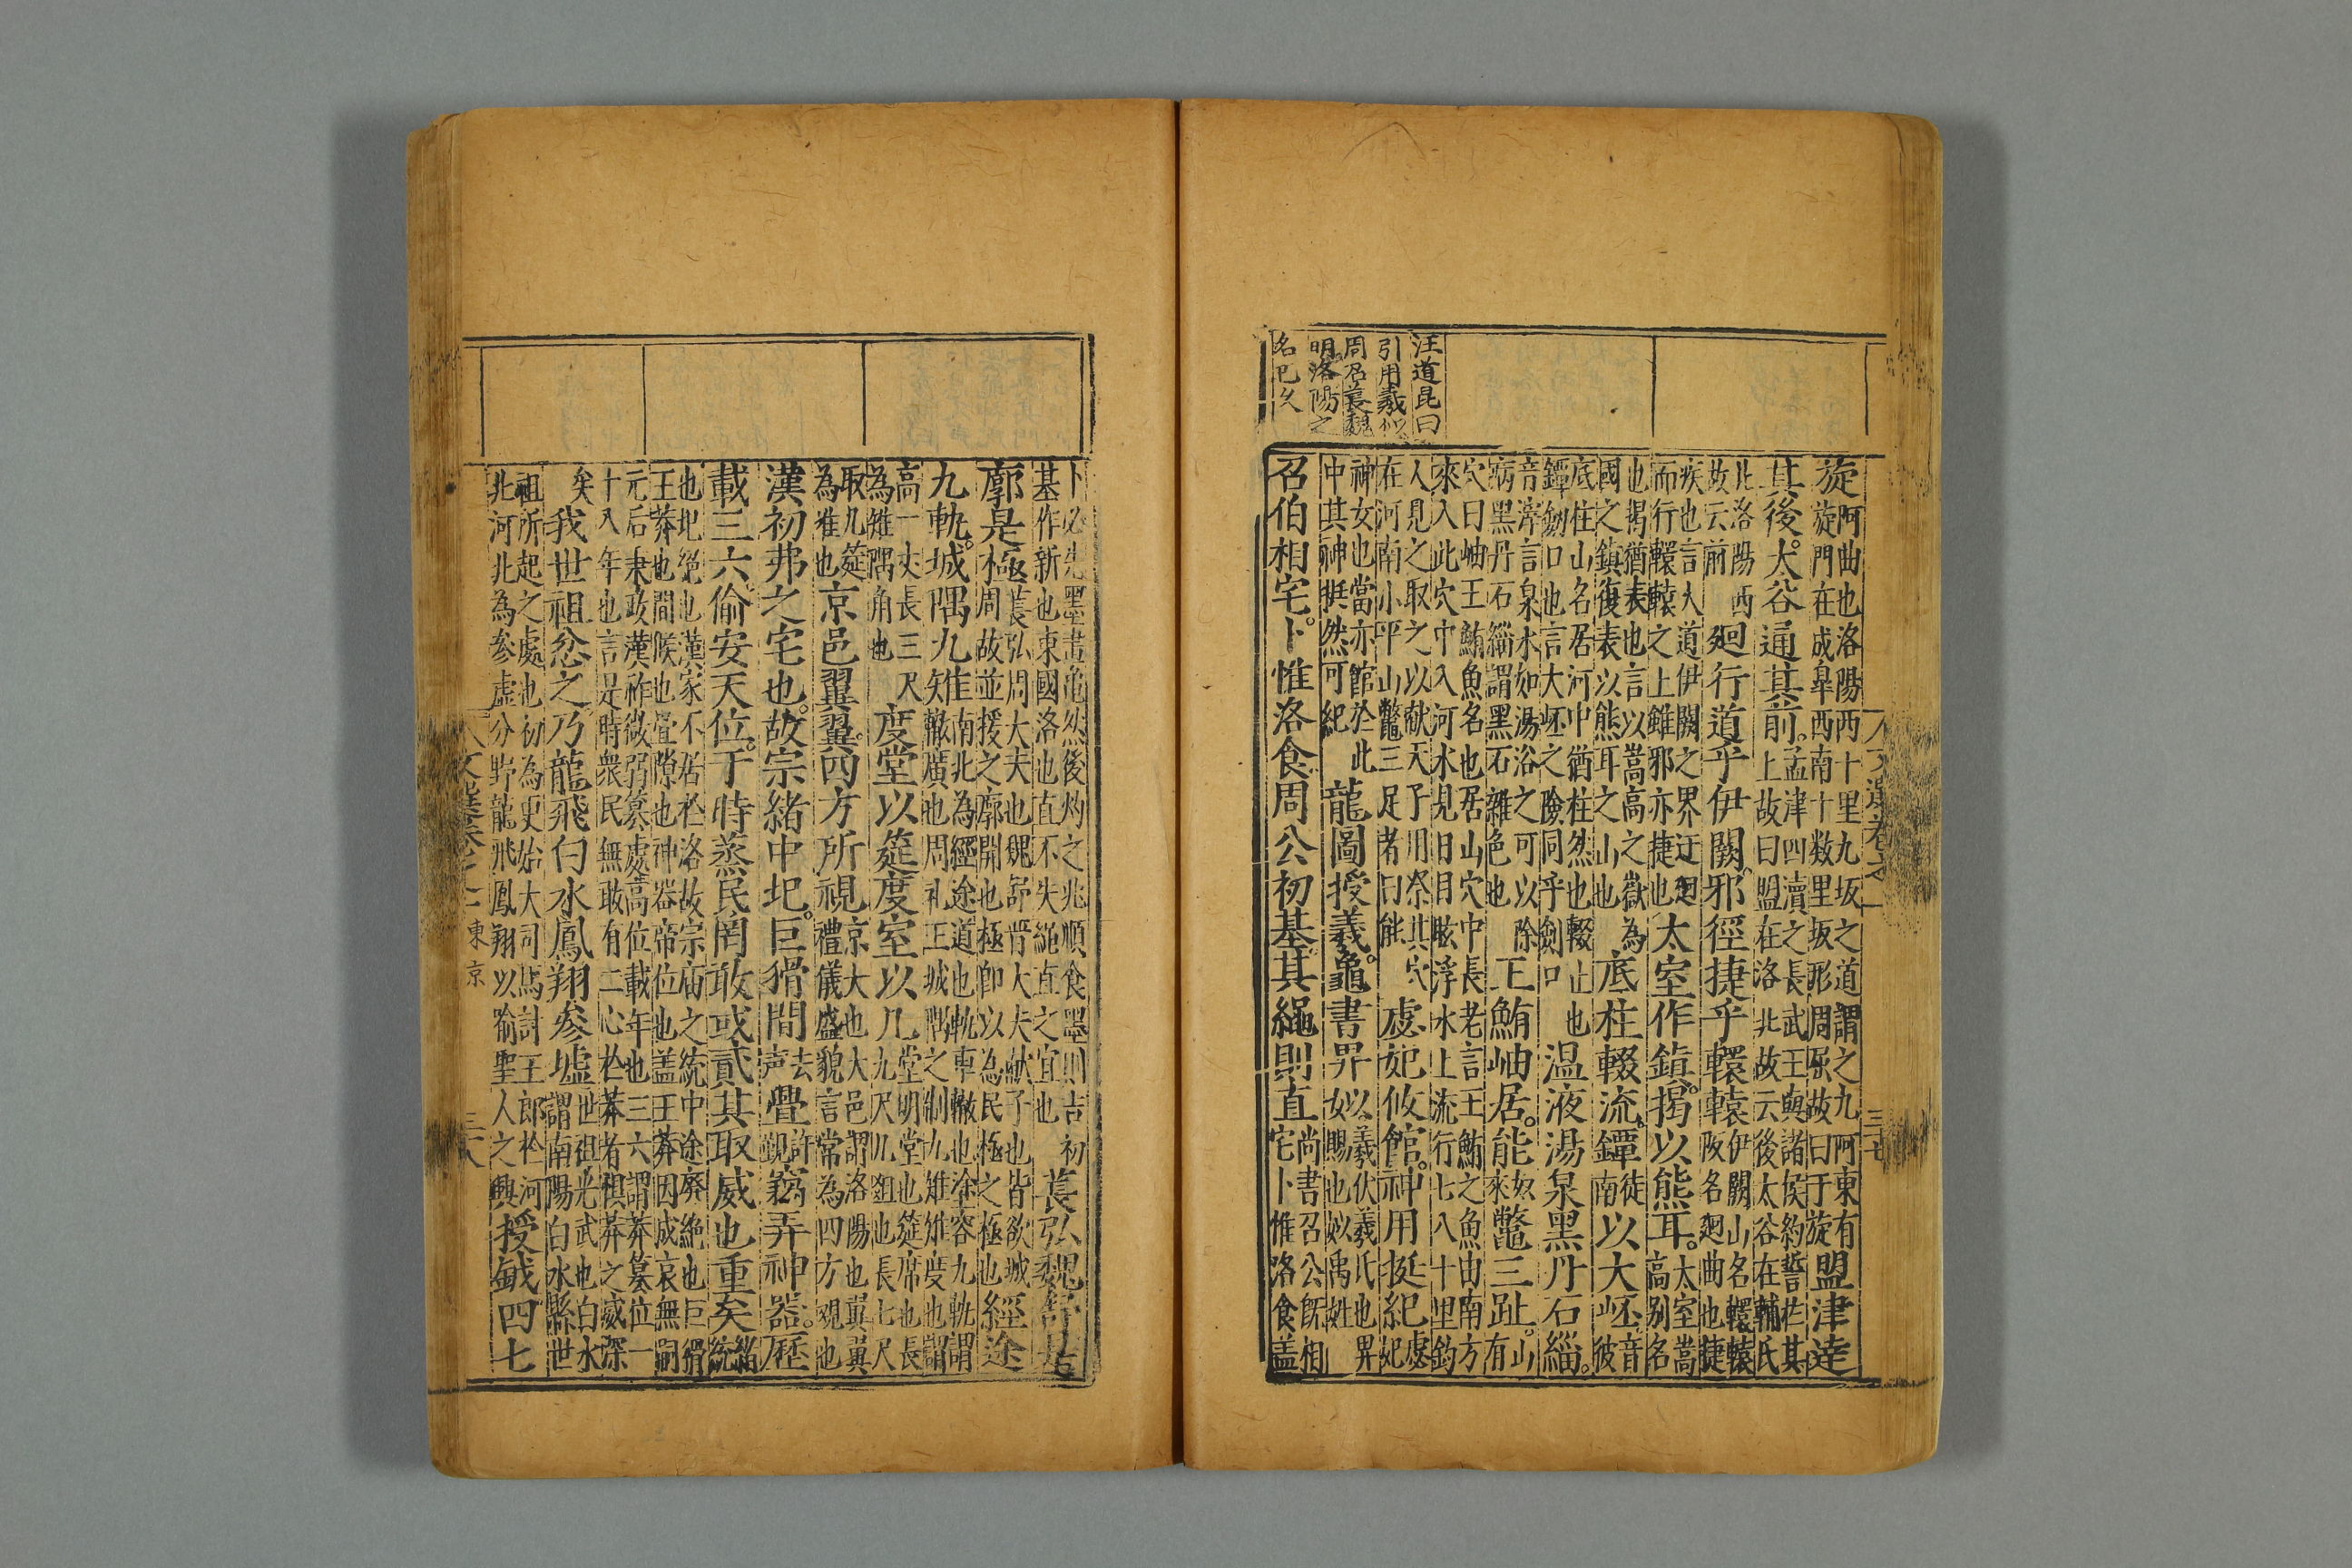 汪道昆曰
引用羲似
周召萇魏
明洛陽之
名已久
旋阿曲也洛陽西十里九坂之道謂之九阿東有
旋門在成皋西南十數里坂形周屈故曰于旋盟津達
其後太谷通其前孟津四瀆之長武王與諸侯約誓於其
上故曰盟在洛北故云後太谷在輔氏
北洛陽西
故云前廻行道乎伊闕邪徑捷乎轘轅伊闕山名轘轅
阪名廻曲也捷
疾也言大道伊闕之界迂廻
而行轘轅之上雖邪亦捷也太室作鎮揭以熊耳太室嵩
高别名
也揭猶表也言以嵩高之嶽為
國之鎮復表以熊耳之山也底柱輟流鐔徒
南以大岯音
彼
底柱山名居河中猶柱然也輟止也
鐔劒口也言大岯之險同乎劒口温液湯泉黑丹石緇
音滓言泉水如湯浴之可以除
病黑丹石緇謂黑石雜色也王鮪岫居能奴
來鼈三趾山
有
穴曰岫王鮪魚名也居山穴中長老言王鮪之魚由南方
來入此穴中入河水見日目眩浮水上流行七八十里釣
人見之取之以献天子用祭其穴
在河南小平山鼈三足者曰能處妃攸館神用挺紀處
妃
神女也當亦館於此
中其神挺然可紀龍圖授羲龜書畀姒羲伏羲氏也畀
賜也姒禹姓
召伯相宅卜惟洛食周公初基其繩則直尚書召公既相
宅卜惟洛食盖
卜必先墨畫龜然後灼之兆順食墨則吉初
基作新也東國洛也直不失繩直之宜也萇弘魏舒是
廓是極萇弘周大夫也魏舒晉大夫献子也皆欲城
周故並援之廓開也極即以為民極之極也經途
九軌城隅九雉南北為經途道也軌車轍也途容九軌謂
轍廣也周礼王城隅之制九雉雉度也謂
高一丈長三尺
為雉隅角也度堂以筵度室以几堂明堂也筵席也長
九尺几俎也長七尺
取九筵
為准也京邑翼翼四方所視京大也大邑謂洛陽也翼翼
禮儀盛貌言常為四方視也
漢初弗之宅也故宗緒中圯巨猾間去
声舋許
覲竊弄神器歷
載三六偷安天位于時蒸民罔敢或貳其取威也重矣緒
統
也圯絕也漢家不居於洛故宗庙之統中途廢絕也巨猾
王莽也間候也舋隙也神器帝位也盖王莽因成哀無嗣
元后秉政漢祚微弱簒處高位載年也三六謂莽簒位一
十八年也言是時衆民無敢有二心於莽者惧莽之威深
矣我世祖忿之乃龍飛白水鳳翔參墟世祖光武也白水
謂南陽白水縣世
祖所起之處也初為更始大司馬討王郎於河
北河北為參虚分野龍飛鳳翔以喻聖人之興授鉞四七
東京
三十八